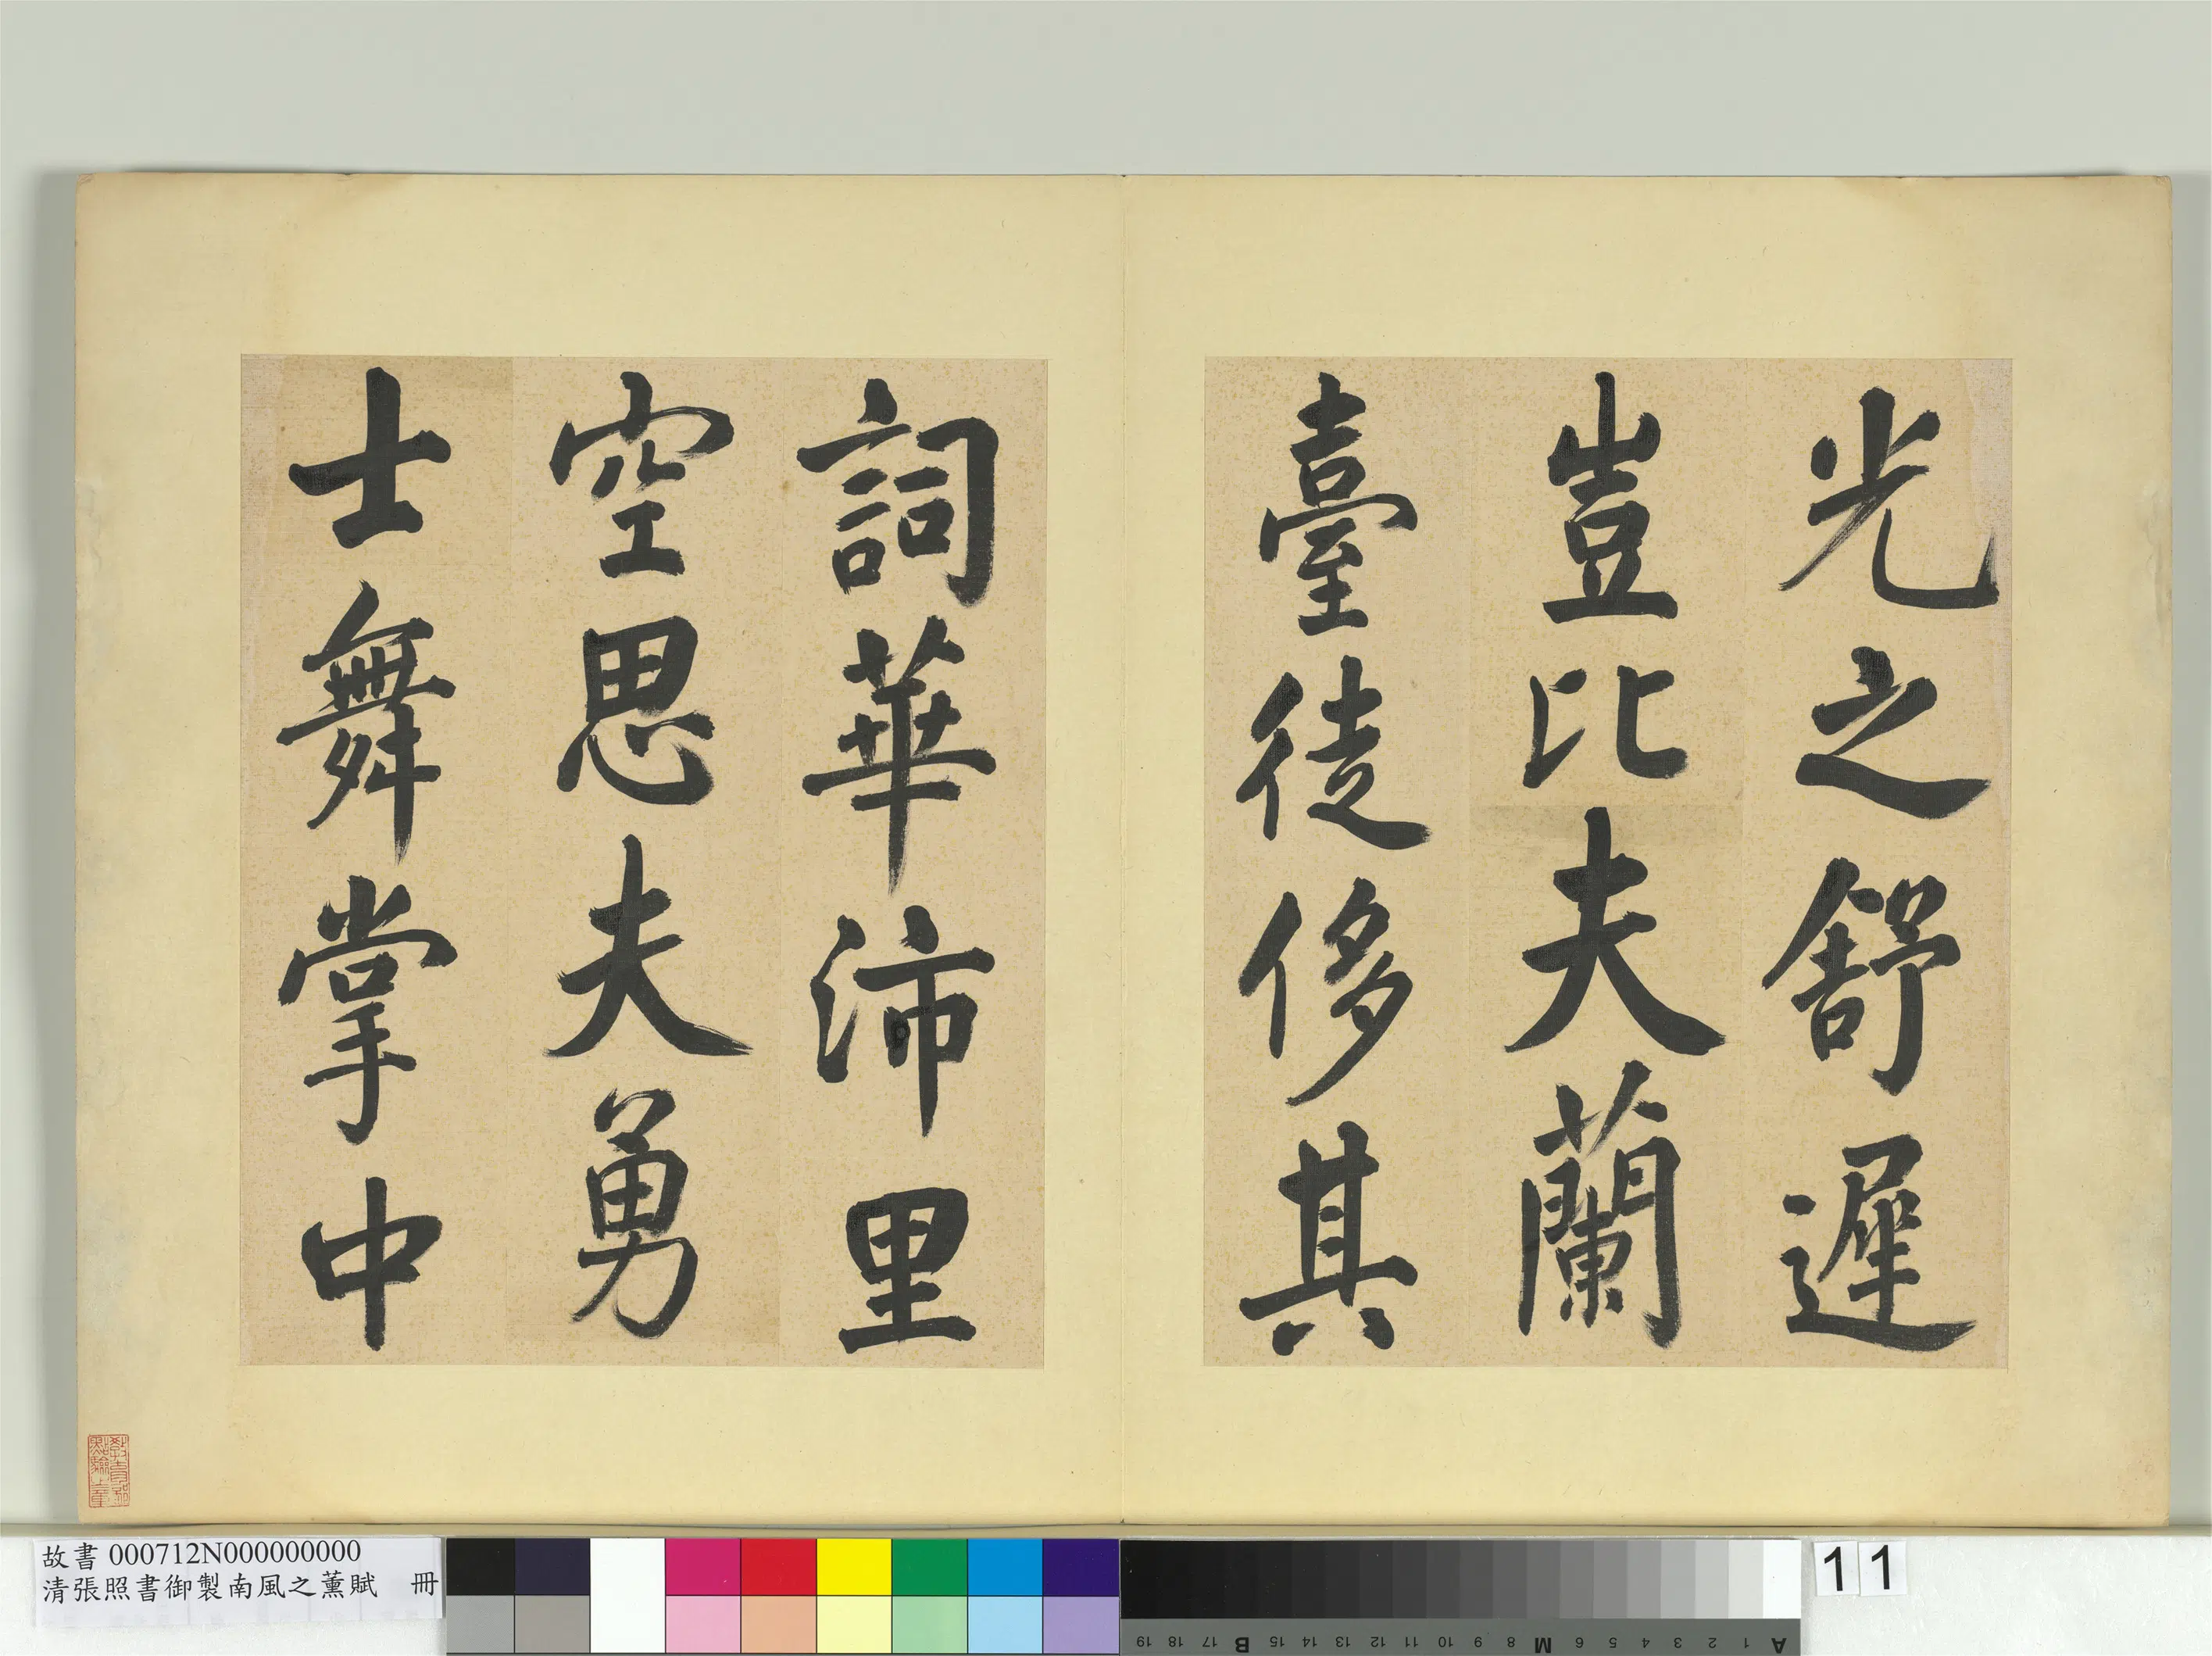 光之舒遲
豈比夫蘭
臺徒侈其
詞華沛里
空思夫勇
士舞掌中
教育部
點驗之章
故書 000712N000000000
清張照書御製南風之薰賦 冊
11
19 18 17 B 15 14 13 12 11 10 9 8 M 6 5 4 3 2 1 A